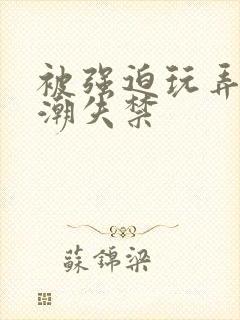 被强迫玩弄
潮失禁
蘇錦梁